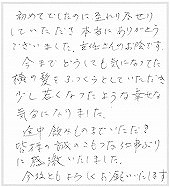 初めてでしたのに至れり尽せり
していただき本当にありがとう
ございました。支社さんのお陰です。
今までどうしても気になってた
横の髪をふっくらとしていただき
少し若くなったような幸せな
気分になりました。
途中飲みものまでいただき
皆様の誠のこもったお仕事ぶり
に感激いたしました。
今後ともよろしくお願いいたします